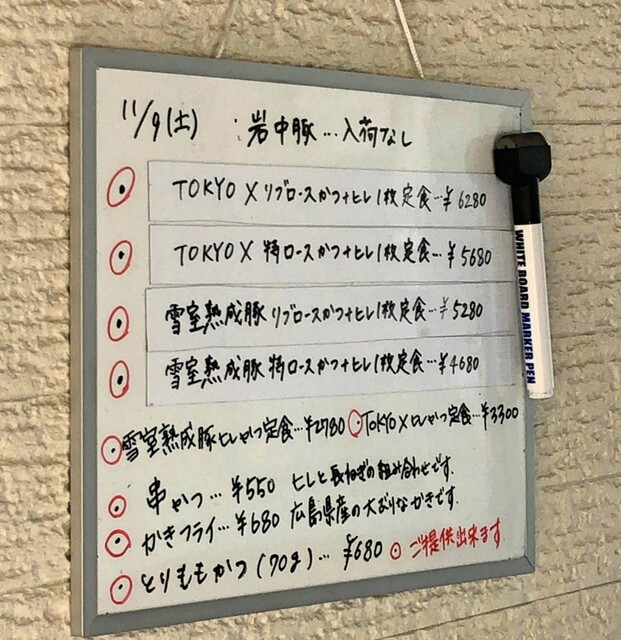 11/9(土) :岩中豚…入荷なし
TOKYO X リブロースかつ+ヒレ1枚定食…¥6280
TOKYO X 特ロースかつ+ヒレ1枚定食…¥5680
雪室熟成豚 リブロースかつ+ヒレ1枚定食…¥5280
雪室熟成豚 特ロースかつ+ヒレ1枚定食…¥4680
雪室熟成豚ヒレかつ定食…¥2780 TOKYO X ヒレかつ定食…¥3300
串かつ…¥550 ヒレと長ねぎの組み合わせです.
かきフライ…¥680 広島県産の大ぶりなかきです.
とりももかつ(70g)…¥680 ご提供出来ます.
WHITE BOARD MARKER PEN